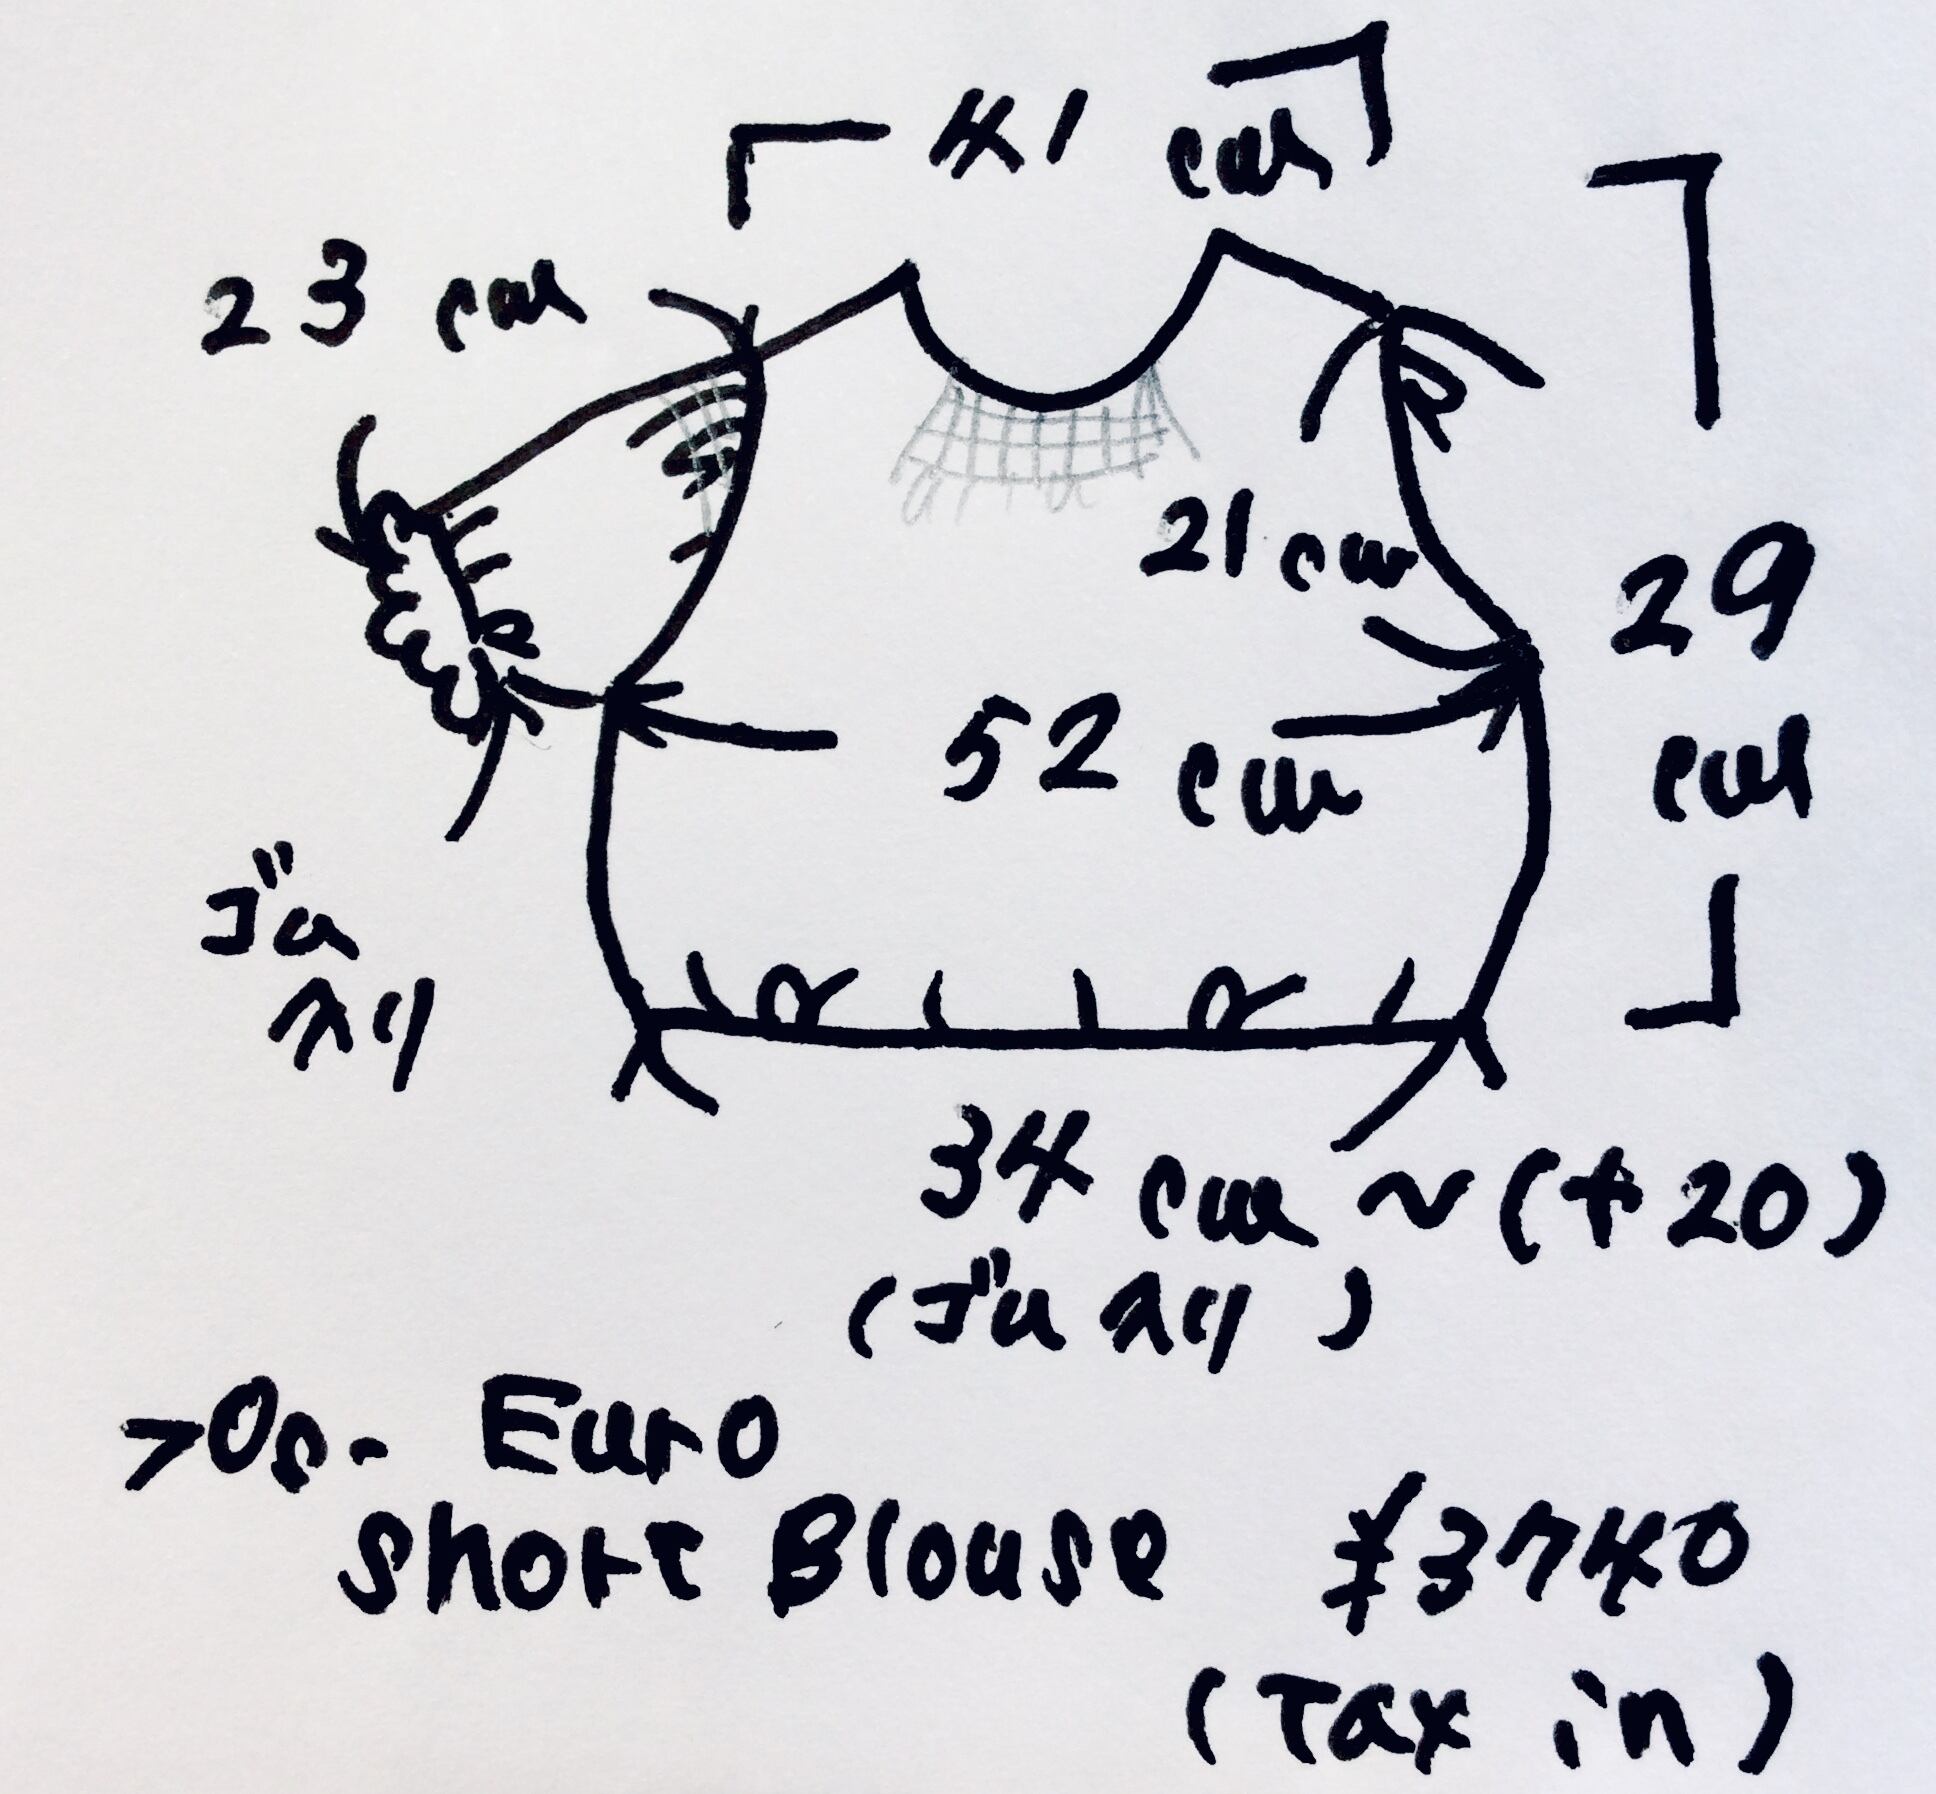 41 cm
23 cm
21 cm
29 cm
52 cm
ゴム
入り
34 cm ~ (+20)
(ゴム入り)
>Os. Euro
Short Blouse ¥3740
(Tax in)